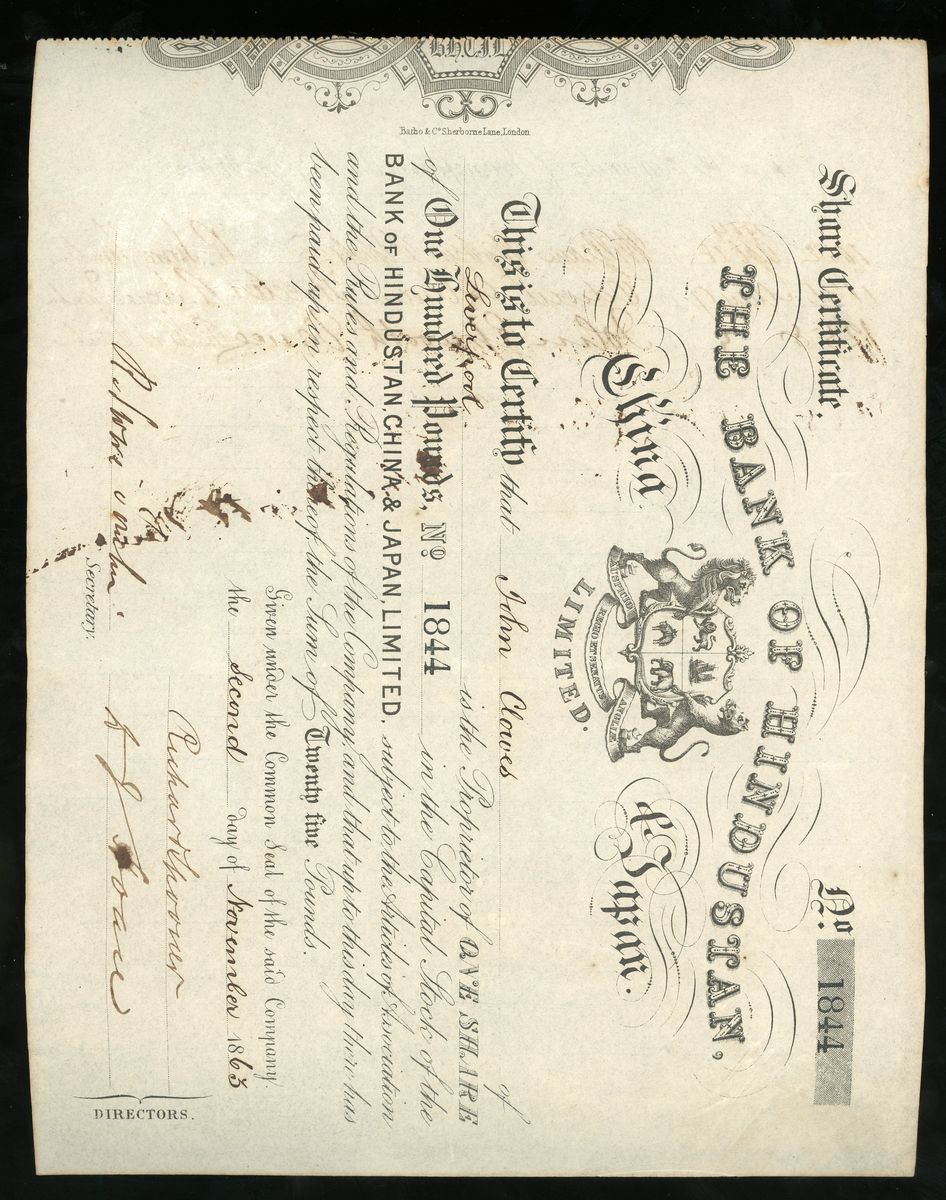 Share Certificate.
No. 1844
THE BANK OF HINDUSTAN,
China & Japan.
LIMITED.
This is to Certify that John Clowes of
Liverpool. is the Proprietor of ONE SHARE
of One Hundred Pounds, No. 1844 in the Capital Stock of the
BANK OF HINDUSTAN, CHINA & JAPAN, LIMITED, subject to the Articles of Association
and the Rules and Regulations of the Company, and that up to this day there has
been paid up in respect thereof, the Sum of Twenty five Pounds.
Given under the Common Seal of the said Company.
the Second day of November 1863
Secretary.
DIRECTORS.
Batho & Co. Sherborne Lane, London